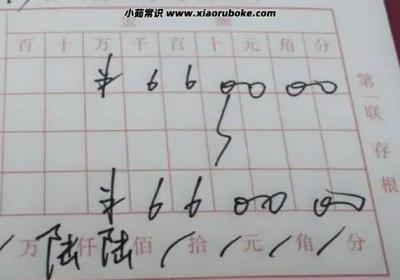 小茹常识 www.xiaoruboke.com
金 额
百 十 万 千 百 十 元 角 分
¥ 6 6 0 0 0 0
¥ 6 6 0 0 0 0
/ 万 陆 仟 陆 佰 / 拾 / 元 / 角 / 分
第一联存根